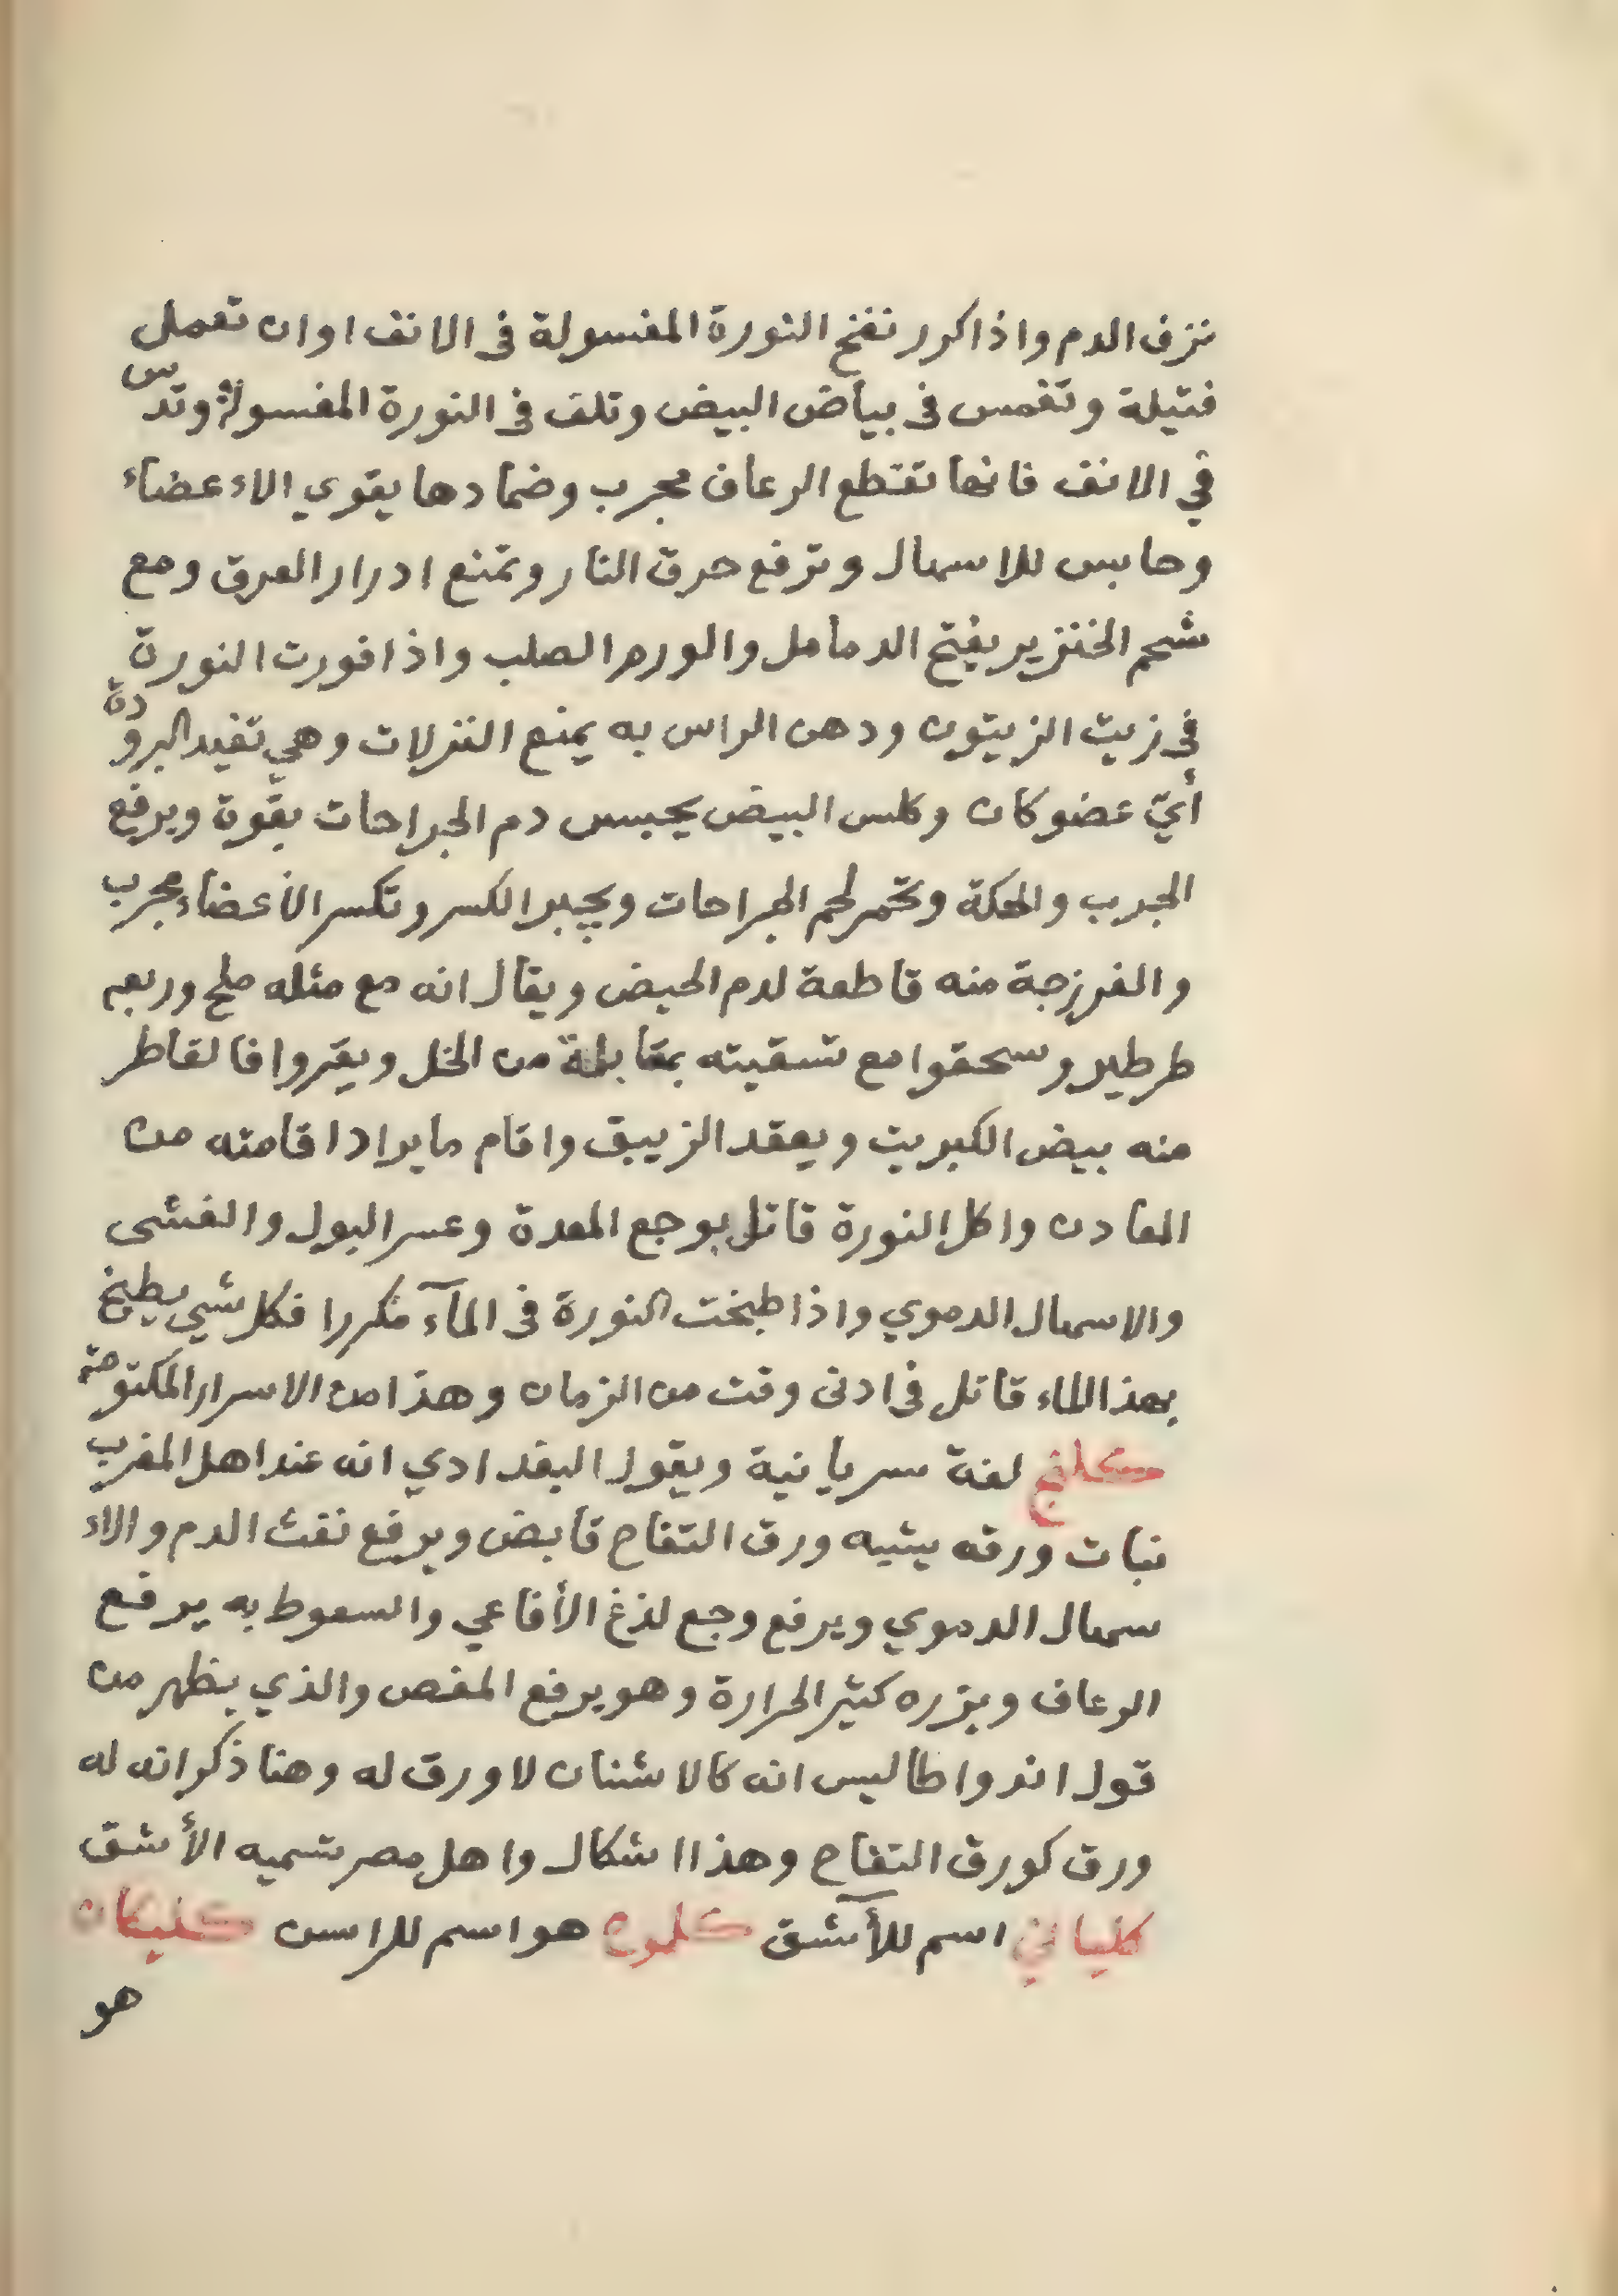 نزف الدم واذا كرر نفخ النورة المغسولة فى الانف اوان تعمل
فتيلة وتغمس فى بياض البيض وتلف فى النورة المغسولة وتدس
في الانف فانها تقتطع الرعاف مجرب وضمادها يقوي الاءعضاء
وحابس للاسهال وترفع حرق النار وتمنع ادرار العرق ومع
شحم الخنزير يفتح الدمامل والورم الصلب واذا فورت النورة
في زيت الزيتون ودهن الراس به يمنع النزلات وهي تفيد البرودة
أيّ عضو كان وكلس البيض يحبس دم الجراحات بقوة ويرفع
الجرب والحكة وتحمر لحم الجراحات ويجبر الكسر وتكسر الأعضاء مجرب
والفرزجة منه قاطعة لدم الحيض ويقال انه مع مثله ملح وربعه
طرطير وسحقوا مع تسقيته بمقابلة من الخل ويقروا فالقاطر
منه بيض الكبريت ويعقد الزيبق واقام ما يراد اقامته من
المعادن واكل النورة قاتل بوجع المعدة وعسر البول والغشى
والاسهال الدموي واذا طبخت النورة فى المآء مكررا فكل شي يطبخ
بهذا الماء قاتل فى ادنى وقت من الزمان وهذا من الاسرار المكتومة
كلنج لغة سريانية ويقول البغدادي انه عند اهل المغرب
نبات ورقه يشبه ورق التفاح قابض ويرفع نفث الدم والاء
سهال الدموي ويرفع وجع لذغ الأفاعي والسعوط به يرفع
الرعاف وبزره كثير الحرارة وهو يرفع المغص والذي يظهر من
قول اندواطاليس انه كالاشنان لا ورق له وهنا ذكر انه له
ورق كورق التفاح وهذا اشكال واهل مصر تسميه الأشق
كلياني اسم للآشق كلمون هو اسم للراسن كنيكان
هو